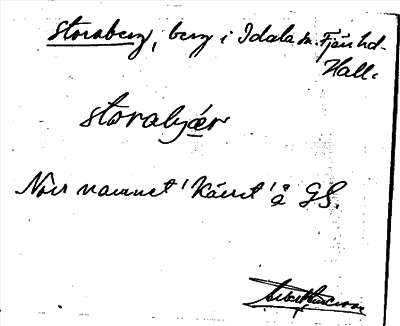 Storaberg, berg i Idala sn. Fjäre hd.
Hall.
storabjär
Nov namnet 'Kärret' å GS.